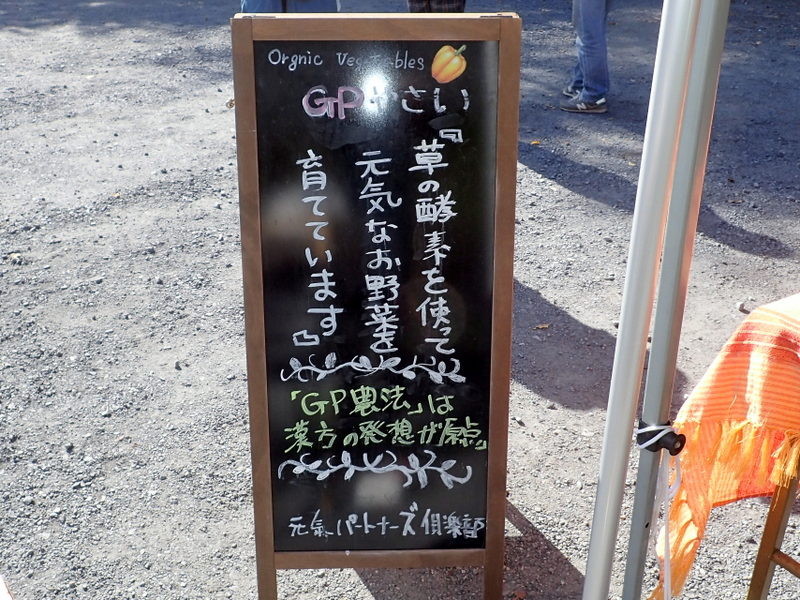 Orgnic Vegetables
GPやさい
『草の酵素を使って
元気なお野菜を
育てています』
「GP農法」は
漢方の発想が原点」
元氣パートナーズ倶楽部